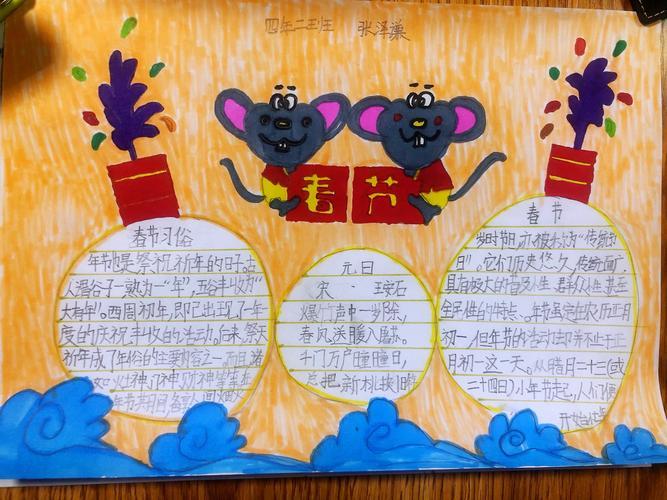 四年二班 张泽谦
春节
春节习俗
年节也是祭祝祈年的日子。古
人谓谷子一熟为一“年”，五谷丰收为“
大有年”。西周初年，即已出现了一年
度的庆祝丰收的活动。后来，祭天
祈年成了年俗的主要内容之一。而且，诸
如灶神、门神、财神
年节期间，备享人间
元日
宋·王安石
爆竹声中一岁除，
春风送暖入屠苏。
千门万户瞳瞳日，
总把新桃换旧
春节
岁时节日，亦被称为“传统节
日”。它们历史悠久，传统面广，
具有极大的普及性、群众性、甚至
全民性的特点。年节虽定在农历正月
初一，但年节的活动却并不止于正
月初一这一天。从腊月二十三（或
二十四日）小年节起，人们便
开始